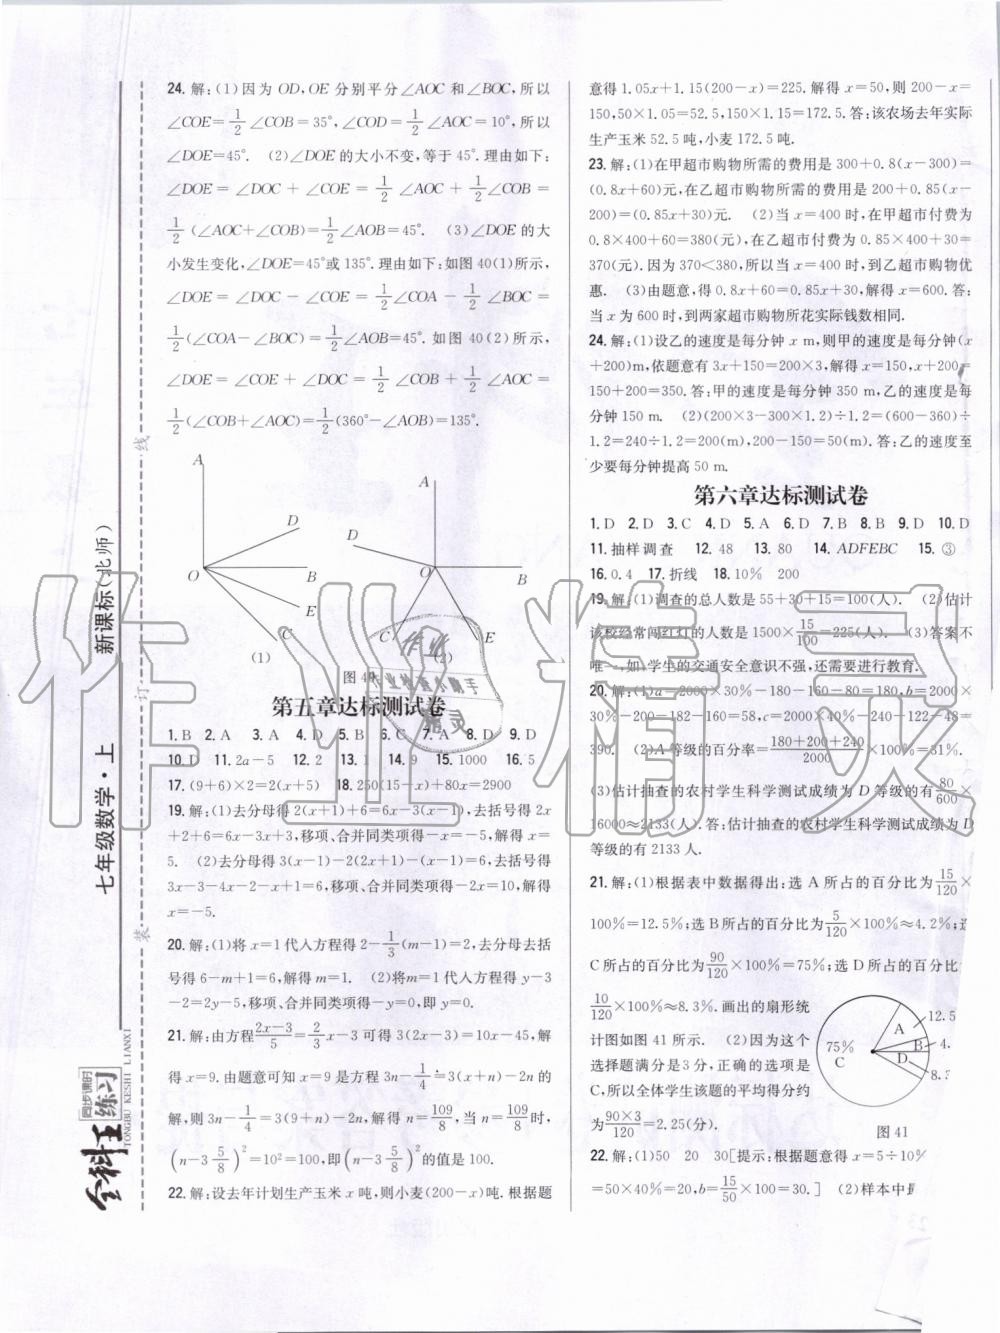 24. 解:(1)因为 OD,OE 分别平分∠AOC 和∠BOC,所以
∠COE=1/2∠COB=35°,∠COD=1/2∠AOC=10°,所以
∠DOE=45°. (2)∠DOE 的大小不变,等于 45°.理由如下:
∠DOE=∠DOC+∠COE=1/2∠AOC+1/2∠COB=
1/2(∠AOC+∠COB)=1/2∠AOB=45°. (3)∠DOE 的大
小发生变化,∠DOE=45°或 135°.理由如下:如图 40(1)所示,
∠DOE=∠DOC-∠COE=1/2∠COA-1/2∠BOC=
1/2(∠COA-∠BOC)=1/2∠AOB=45°.如图 40(2)所示,
∠DOE=∠COE+∠DOC=1/2∠COB+1/2∠AOC=
1/2(∠COB+∠AOC)=1/2(360°-∠AOB)=135°.
A
D
O
B
E
C
(1)
A
D
O
B
C
E
(2)
图 40
第五章达标测试卷
1. B 2. A 3. A 4. D 5. B 6. C 7. A 8. D 9. D
10. D 11. 2a-5 12. 2 13. 1 14. 9 15. 1000 16. 5
17. (9+6)×2=2(x+5) 18. 250(15-x)+80x=2900
19. 解:(1)去分母得 2(x+1)+6=6x-3(x-1),去括号得 2x
+2+6=6x-3x+3,移项、合并同类项得-x=-5,解得 x=
5. (2)去分母得 3(x-1)-2(2x+1)-(x-1)=6,去括号得
3x-3-4x-2-x+1=6,移项、合并同类项得-2x=10,解得
x=-5.
20. 解:(1)将 x=1 代入方程得 2-1/3(m-1)=2,去分母去括
号得 6-m+1=6,解得 m=1. (2)将m=1 代入方程得 y-3
-2=2y-5,移项、合并同类项得-y=0,即 y=0.
21. 解:由方程(2x-3)/5=2/3x-3 可得 3(2x-3)=10x-45,解
得 x=9.由题意可知 x=9 是方程 3n-1/4=3(x+n)-2n 的
解,则 3n-1/4=3(9+n)-2n,解得 n=109/8,当 n=109/8时,
(n-3 5/8)²=10²=100,即(n-3 5/8)²的值是 100.
22. 解:设去年计划生产玉米 x 吨,则小麦(200-x)吨.根据题
意得 1.05x+1.15(200-x)=225.解得 x=50,则 200-x=
150,50×1.05=52.5,150×1.15=172.5.答:该农场去年实际
生产玉米 52.5 吨,小麦 172.5 吨.
23. 解:(1)在甲超市购物所需的费用是 300+0.8(x-300)=
(0.8x+60)元,在乙超市购物所需的费用是 200+0.85(x-
200)=(0.85x+30)元. (2)当 x=400 时,在甲超市付费为
0.8×400+60=380(元),在乙超市付费为 0.85×400+30=
370(元).因为 370<380,所以当 x=400 时,到乙超市购物优
惠. (3)由题意,得 0.8x+60=0.85x+30,解得 x=600.答:
当 x 为 600 时,到两家超市购物所花实际钱数相同.
24. 解:(1)设乙的速度是每分钟 x m,则甲的速度是每分钟(x
+200)m,依题意有 3x+150=200×3,解得 x=150,x+200=
150+200=350.答:甲的速度是每分钟 350 m,乙的速度是每
分钟 150 m. (2)(200×3-300×1.2)÷1.2=(600-360)÷
1.2=240÷1.2=200(m),200-150=50(m).答:乙的速度至
少要每分钟提高 50 m.
第六章达标测试卷
1. D 2. D 3. C 4. D 5. A 6. D 7. B 8. B 9. D 10. D
11. 抽样调查 12. 48 13. 80 14. ADFEBC 15. ③
16. 0.4 17. 折线 18. 10% 200
19. 解:(1)调查的总人数是 55+30+15=100(人). (2)估计
该校经常闯红灯的人数是 1500×15/100=225(人). (3)答案不
唯一,如:学生的交通安全意识不强,还需要进行教育.
20. 解:(1)a=2000×30%-180-160-80=180,b=2000×
30%-200-182-160=58,c=2000×40%-240-122-48=
390. (2)A 等级的百分率=(180+200+240)/2000×100%=31%.
(3)估计抽查的农村学生科学测试成绩为 D 等级的有80/600×
16000≈2133(人).答:估计抽查的农村学生科学测试成绩为 D
等级的有 2133 人.
21. 解:(1)根据表中数据得出:选 A 所占的百分比为15/120×
100%=12.5%;选 B 所占的百分比为5/120×100%≈4.2%;选
C 所占的百分比为90/120×100%=75%;选 D 所占的百分比
10/120×100%≈8.3%.画出的扇形统
计图如图 41 所示. (2)因为这个
选择题满分是 3 分,正确的选项是
C,所以全体学生该题的平均得分约
为(90×3)/120=2.25(分).
75%
C
A
B
D
12.5
4.
8.3
图 41
22. 解:(1)50 20 30[提示:根据题意得 x=5÷10%
=50×40%=20,b=15/50×100=30.] (2)样本中
七年级数学·上 新课标(北师)
全科王
同步课时
练习
TONGBU KESHI LIANXI
装 订 线
作业精灵
作业
作业检查小助手
精灵